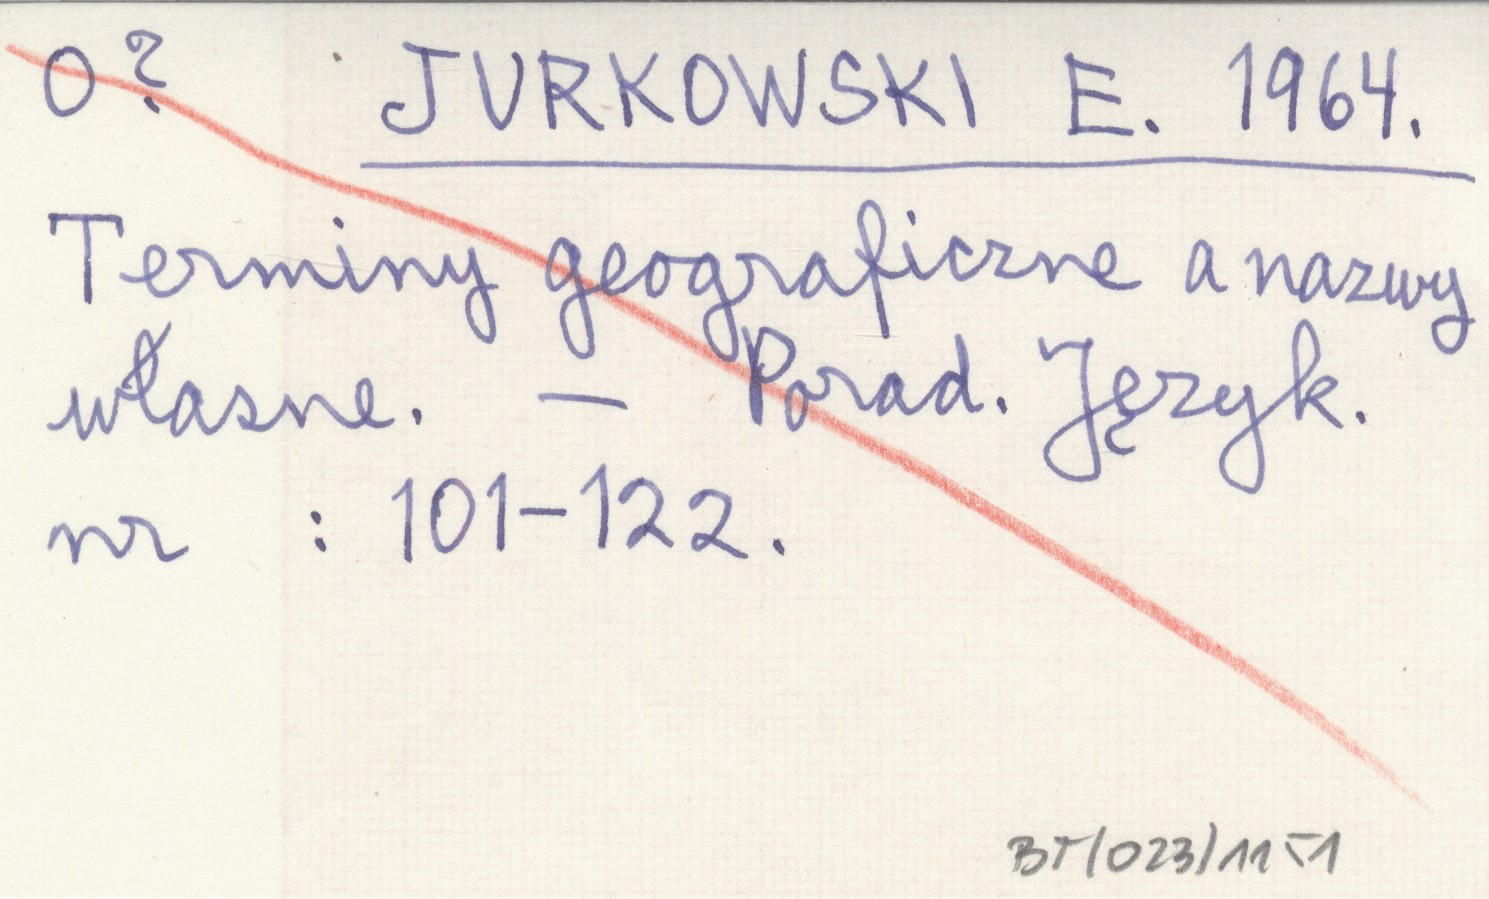 O? JURKOWSKI E. 1964.
Terminy geograficzne a nazwy
własne. — Porad. Język.
nr : 101-122.
BT/023/11